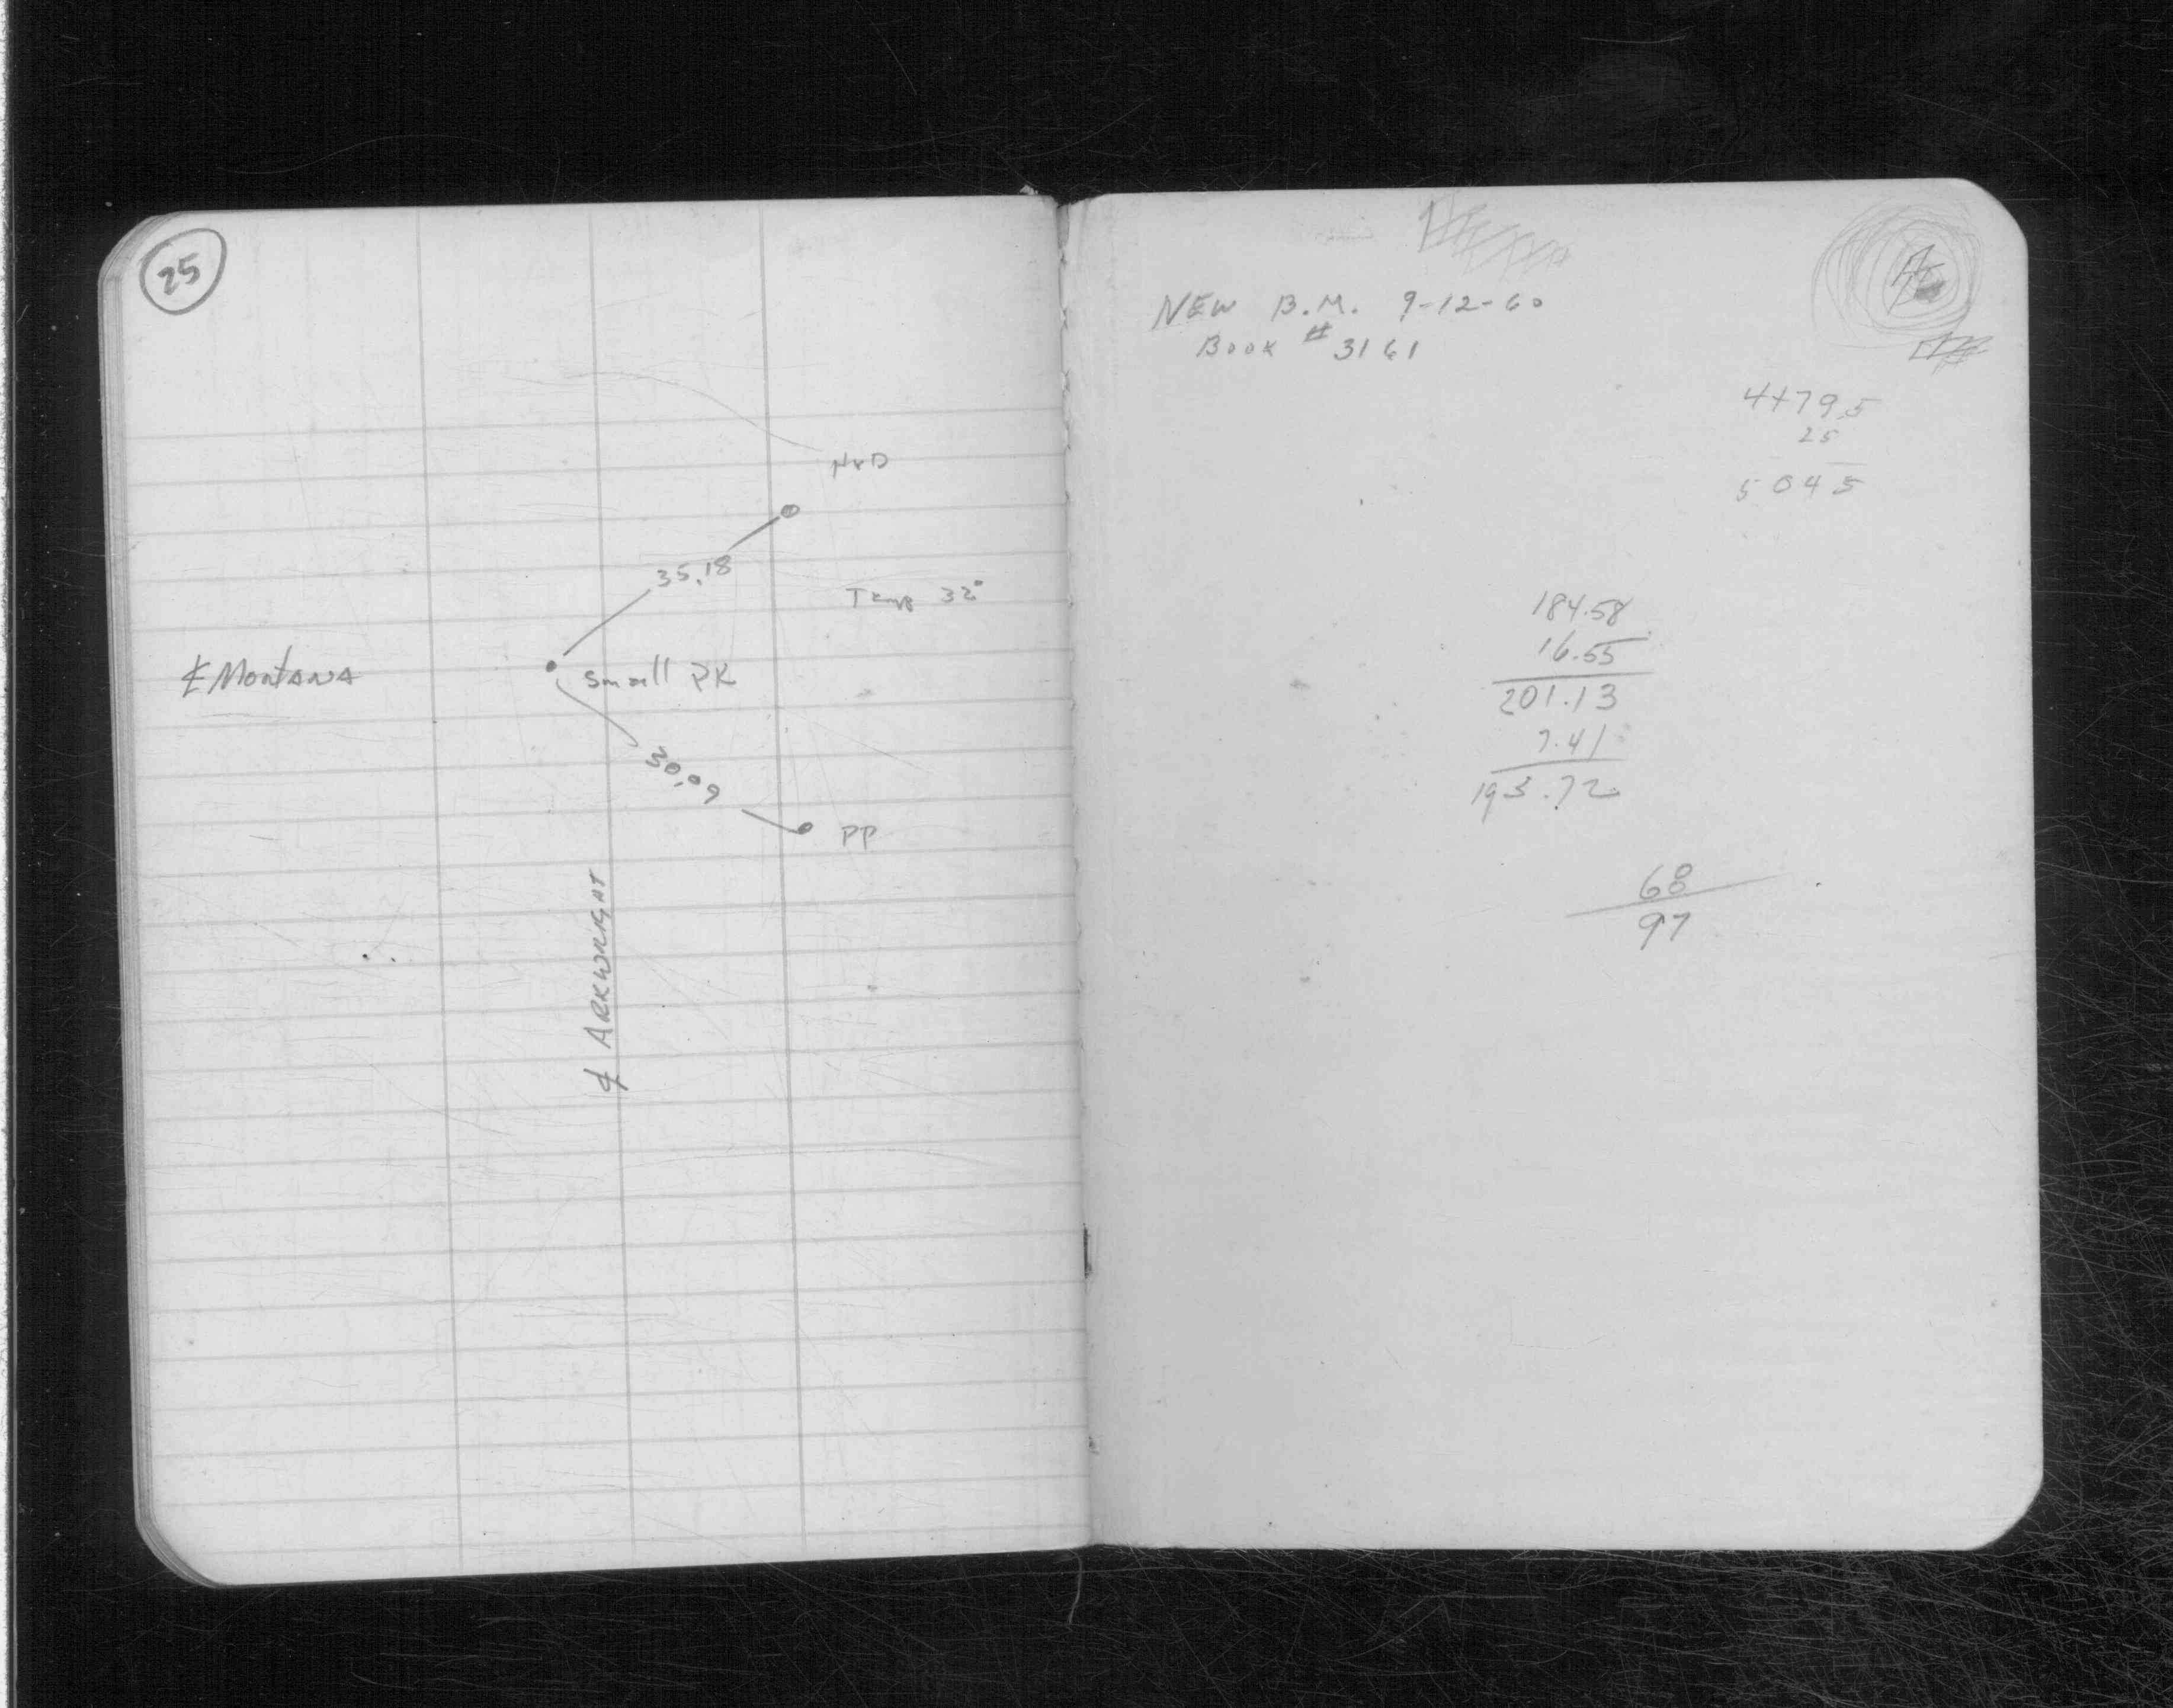 25
N&D
35.18
Temp 32°
℄ MONTANA
Small PK
30.09
PP
℄ ARKWRIGHT
NEW B.M. 9-12-60
BOOK # 3161
4+79.5
25
5 04 5
184.58
16.55
201.13
7.41
193.72
68
97